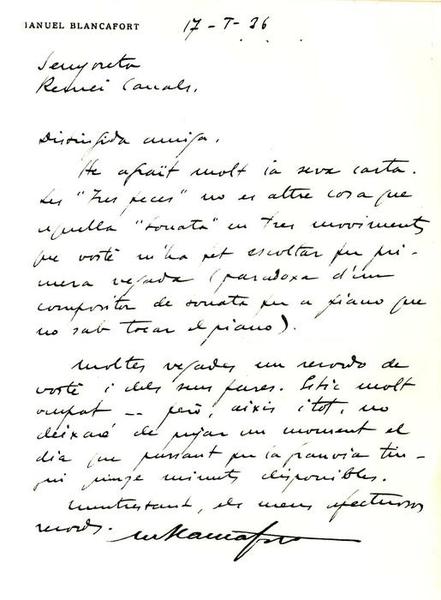 IANUEL BLANCAFORT
17-I-36
Senyoreta
Remei Canals.
Distingida amiga.
He agraït molt la seva carta.
Les "Tres peces" no es altre cosa que
aquella "Sonata" en tres moviments
que vostè m'ha fet escoltar per pri-
mera vegada (paradoxa d'un
compositor de sonata per a piano que
no sab tocar el piano).
Moltes vegades un recordo de
vostè i dels seus pares. Estic molt
ocupat -- però, aixis i tot, no
deixaré de pujar un moment el
dia que passant per la granvia tin-
gui quinze minuts disponibles.
Mentrestant, els meus afectuosos
records.
M Blancafort